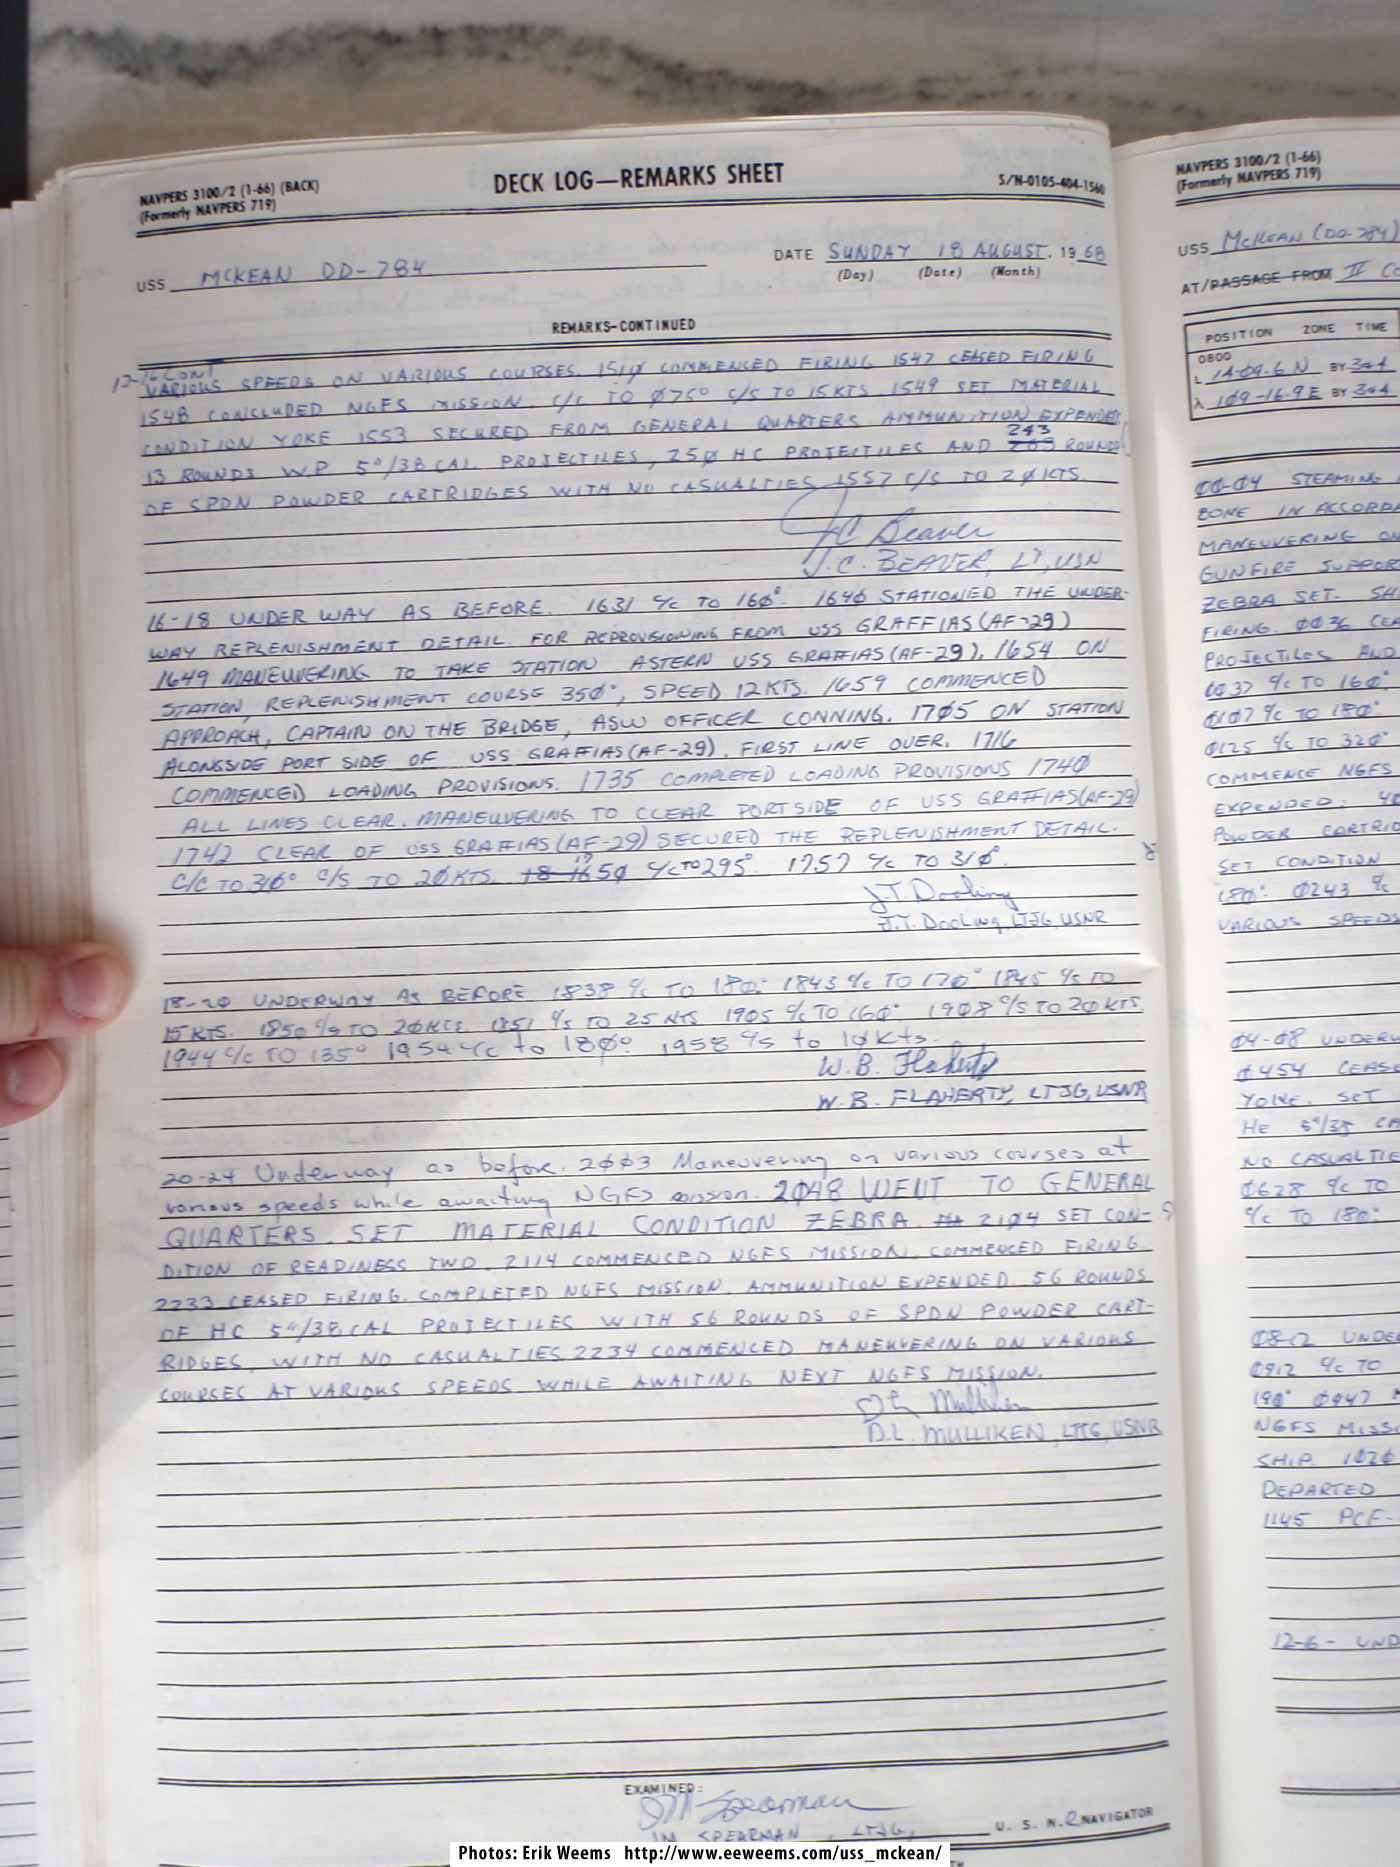 NAVPERS 3100/2 (1-66) (BACK)
(Formerly NAVPERS 719)
DECK LOG—REMARKS SHEET
S/N-0105-404-1560
USS MCKEAN DD-784
DATE SUNDAY 18 AUGUST. 19 68
(Day) (Date) (Month)
REMARKS-CONTINUED
12-16 CONT
VARIOUS SPEEDS ON VARIOUS COURSES. 151Ø COMMENCED FIRING 1547 CEASED FIRING
1548 CONCLUDED NGFS MISSION. C/C TO Ø75° C/S TO 15 KTS. 1549 SET MATERIAL
CONDITION YOKE 1553 SECURED FROM GENERAL QUARTERS. AMMUNITION EXPENDED
243
13 ROUNDS WP 5"/38 CAL PROJECTILES, 25Ø HC PROJECTILES AND 263 ROUNDS
OF SPDN POWDER CARTRIDGES WITH NO CASUALTIES 1557 C/S TO 2Ø KTS.
J.C. Beaver
J.C. BEAVER, LT, USN
16-18 UNDERWAY AS BEFORE. 1631 C/C TO 16Ø°. 164Ø STATIONED THE UNDER-
WAY REPLENISHMENT DETAIL. FOR REPROVISIONING FROM USS GRAFFIAS (AF-29)
1649 MANEUVERING TO TAKE STATION ASTERN USS GRAFFIAS (AF-29). 1654 ON
STATION, REPLENISHMENT COURSE 35Ø°, SPEED 12 KTS. 1659 COMMENCED
APPROACH, CAPTAIN ON THE BRIDGE, ASW OFFICER CONNING. 17Ø5 ON STATION
ALONGSIDE PORT SIDE OF USS GRAFFIAS (AF-29). FIRST LINE OVER. 1716
COMMENCED LOADING PROVISIONS. 1735 COMPLETED LOADING PROVISIONS 174Ø
ALL LINES CLEAR. MANEUVERING TO CLEAR PORTSIDE OF USS GRAFFIAS (AF-29)
1742 CLEAR OF USS GRAFFIAS (AF-29) SECURED THE REPLENISHMENT DETAIL.
C/C TO 31Ø° C/S TO 2Ø KTS. 18 16 17 5Ø C/C TO 295°. 1757 C/C TO 31Ø°.
J.T. Dooling
J.T. Dooling, LTJG, USNR
18-2Ø UNDERWAY AS BEFORE 1838 C/C TO 18Ø° 1843 C/C TO 17Ø° 1845 C/S TO
15 KTS. 185Ø C/S TO 2Ø KTS. 1851 C/S TO 25 KTS 19Ø5 C/C TO 16Ø° 19Ø8 C/S TO 2Ø KTS.
1944 C/C TO 135° 1954 C/C to 18Ø° 1958 C/S to 1Ø Kts.
W.B. Flaherty
W.B. FLAHERTY, LTJG, USNR
20-24 Underway as before. 2ØØ3 Maneuvering on various courses at
various speeds while awaiting NGFS mission. 2Ø48 WENT TO GENERAL
QUARTERS. SET MATERIAL CONDITION ZEBRA. 21Ø4 SET CON-
DITION OF READINESS TWO. 2114 COMMENCED NGFS MISSION. COMMENCED FIRING.
2233 CEASED FIRING. COMPLETED NGFS MISSION. AMMUNITION EXPENDED. 56 ROUNDS
OF HC 5"/38 CAL PROJECTILES WITH 56 ROUNDS OF SPDN POWDER CART-
RIDGES, WITH NO CASUALTIES. 2234 COMMENCED MANEUVERING ON VARIOUS
COURSES AT VARIOUS SPEEDS WHILE AWAITING NEXT NGFS MISSION.
D L Mulliken
D.L. MULLIKEN, LTJG, USNR
EXAMINED:
JM Spearman
JM SPEARMAN, LTJG, U. S. N.R NAVIGATOR
NAVPERS 3100/2 (1-66)
(Formerly NAVPERS 719)
USS MCKEAN (DD-784)
AT/PASSAGE FROM II CO
POSITION ZONE TIME
0800
L 14-Ø9.6 N BY 3&4
λ 1Ø9-16.9 E BY 3&4
ØØ-Ø4 STEAMING
ZONE IN ACCORDA
MANEUVERING ON
GUNFIRE SUPPOR
ZEBRA SET.
FIRING. ØØ36 CEA
PROJECTILES AND
ØØ37 C/C TO 16Ø°
Ø1Ø7 C/C TO 18Ø°
Ø125 C/C TO 32Ø°
COMMENCE NGFS
EXPENDED: 4
POWDER CARTRID
SET CONDITION
18Ø° Ø243 C/C
VARIOUS SPEEDS
Ø4-Ø8 UNDERW
Ø454 CEASE
YOKE. SET
HC 5"/38 CA
NO CASUALTIE
Ø628 C/C TO
C/C TO 18Ø°
Ø8-12 UNDE
Ø912 C/C TO
19Ø° Ø947
NGFS MISSI
SHIP. 1Ø2Ø
DEPARTED
1145 PCF-
12-6 - UND
Photos: Erik Weems http://www.eeweems.com/uss_mckean/